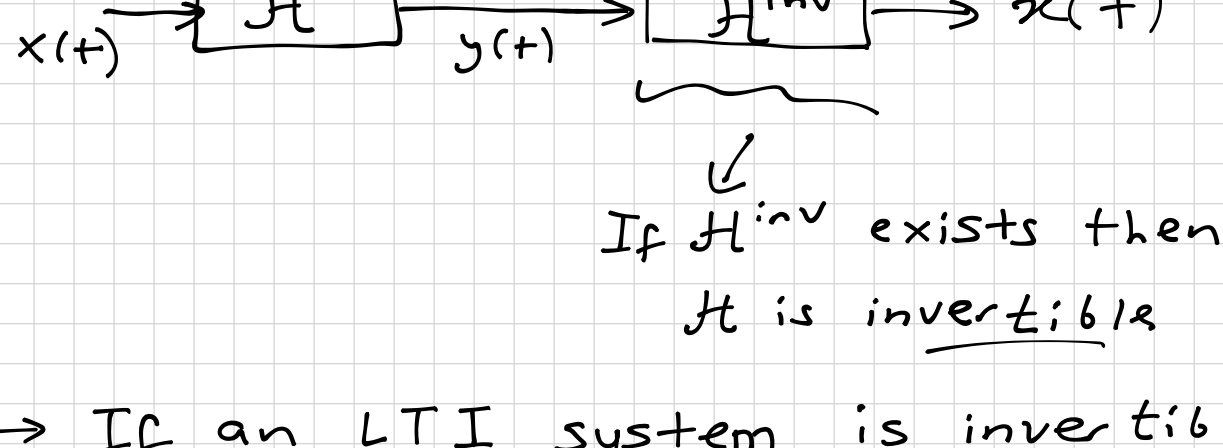 H H^inv x(t)
x(t) y(t)
If H^inv exists then
H is invertible
→ If an LTI system is invertib